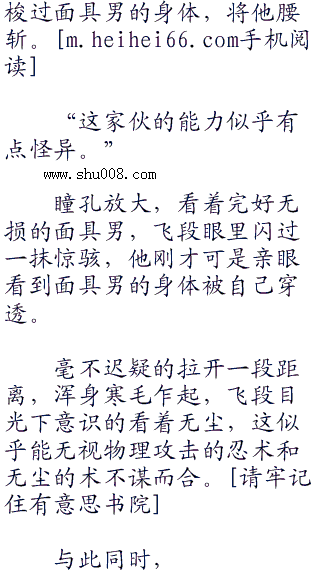 梭过面具男的身体，将他腰
斩。[m.heihei66.com手机阅
读]
“这家伙的能力似乎有
点怪异。”
www.shu008.com
瞳孔放大，看着完好无
损的面具男，飞段眼里闪过
一抹惊骇，他刚才可是亲眼
看到面具男的身体被自己穿
透。
毫不迟疑的拉开一段距
离，浑身寒毛乍起，飞段目
光下意识的看着无尘，这似
乎能无视物理攻击的忍术和
无尘的术不谋而合。[请牢记
住有意思书院]
与此同时，